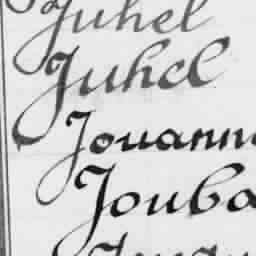 Juhel
Juhel
Jouann
Jouba